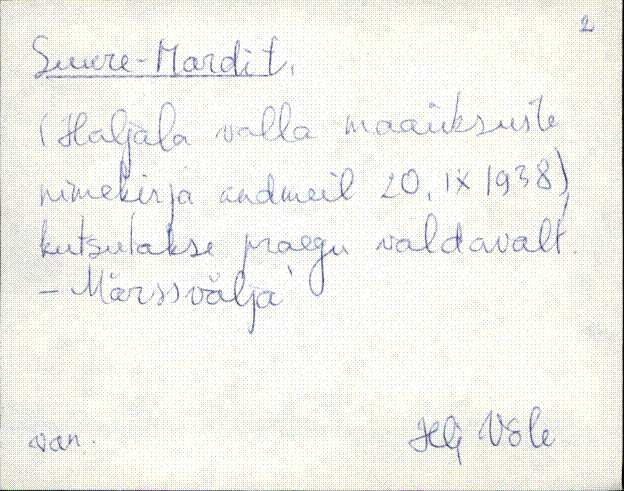 2
Suure-Mardit.
(Haljala valla maaüksuste
nimekirja andmeil 20. IX 1938)
kutsutakse praegu valdavalt.
- Märssvälja
van. Helj Võle